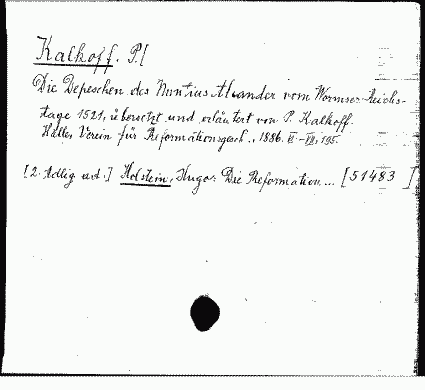 Kalkoff. P.[
Die Depeschen des Nuntius Aleander vom Wormser Reichs-
tage 1521, übersetzt und erläutert von P. Kalkoff.
Halle, Verein für Reformationsgesch., 1886. VI-VII, 195.
[2. Adlig ust.] Holstein, Hugo: Die Reformation ... [51483 ]